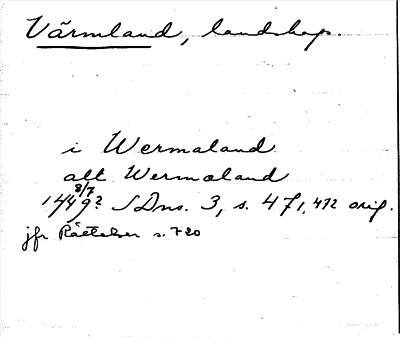 Värmland, landskap.
i Wermaland
alt Wermaland
8/7
1449? SDns. 3, s. 471, 472 orig.
jfr Rättelser s. 720